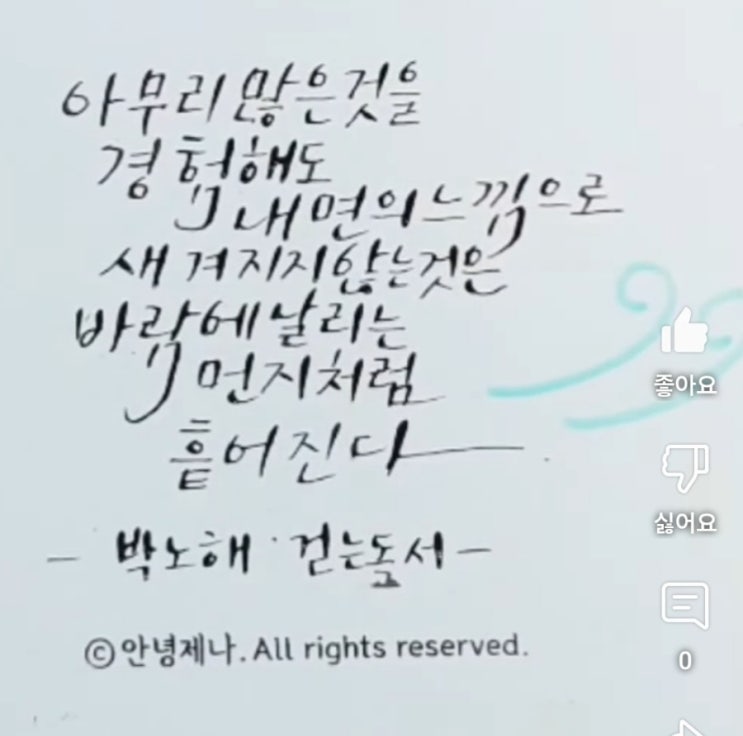 아무리 많은것을
경험해도
내면의 느낌으로
새겨지지 않는것은
바람에 날리는
먼지처럼
흩어진다
- 박노해 · 걷는독서 -
©안녕제나. All rights reserved.
좋아요
싫어요
0